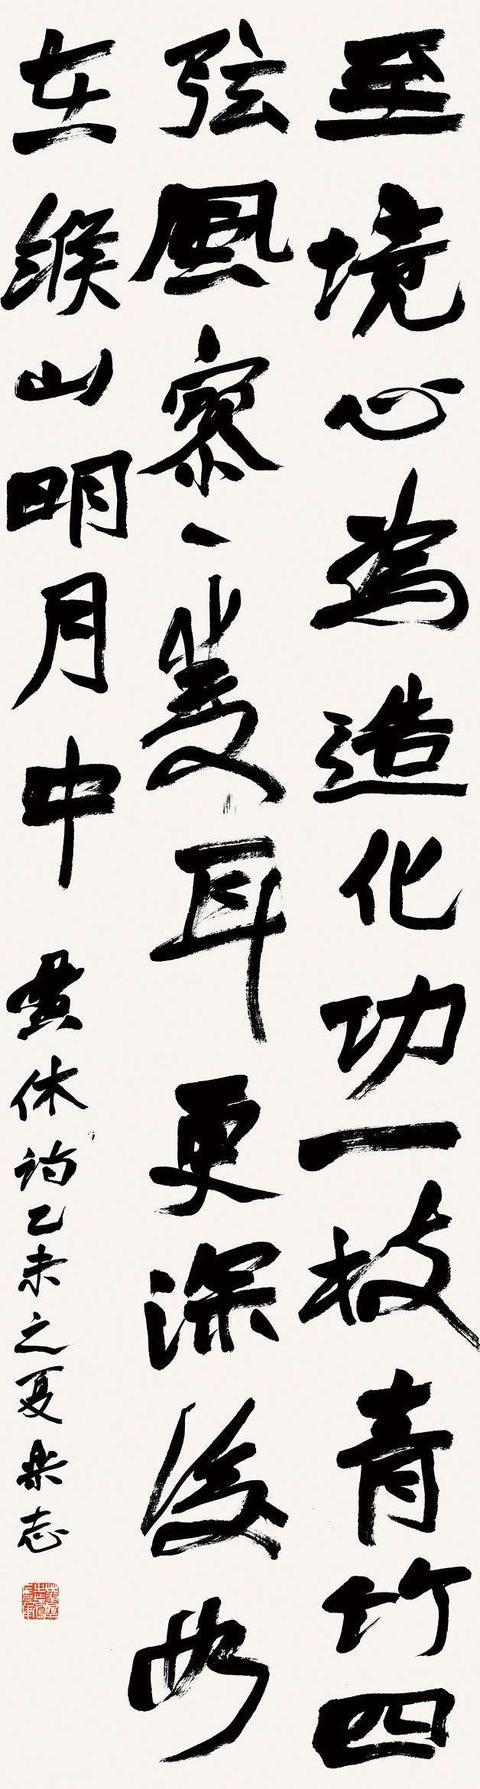 至境心為造化功一枝青竹四
弦風寥〻雙耳更深後如
在緱山明月中 黄休詩乙未之夏樂志